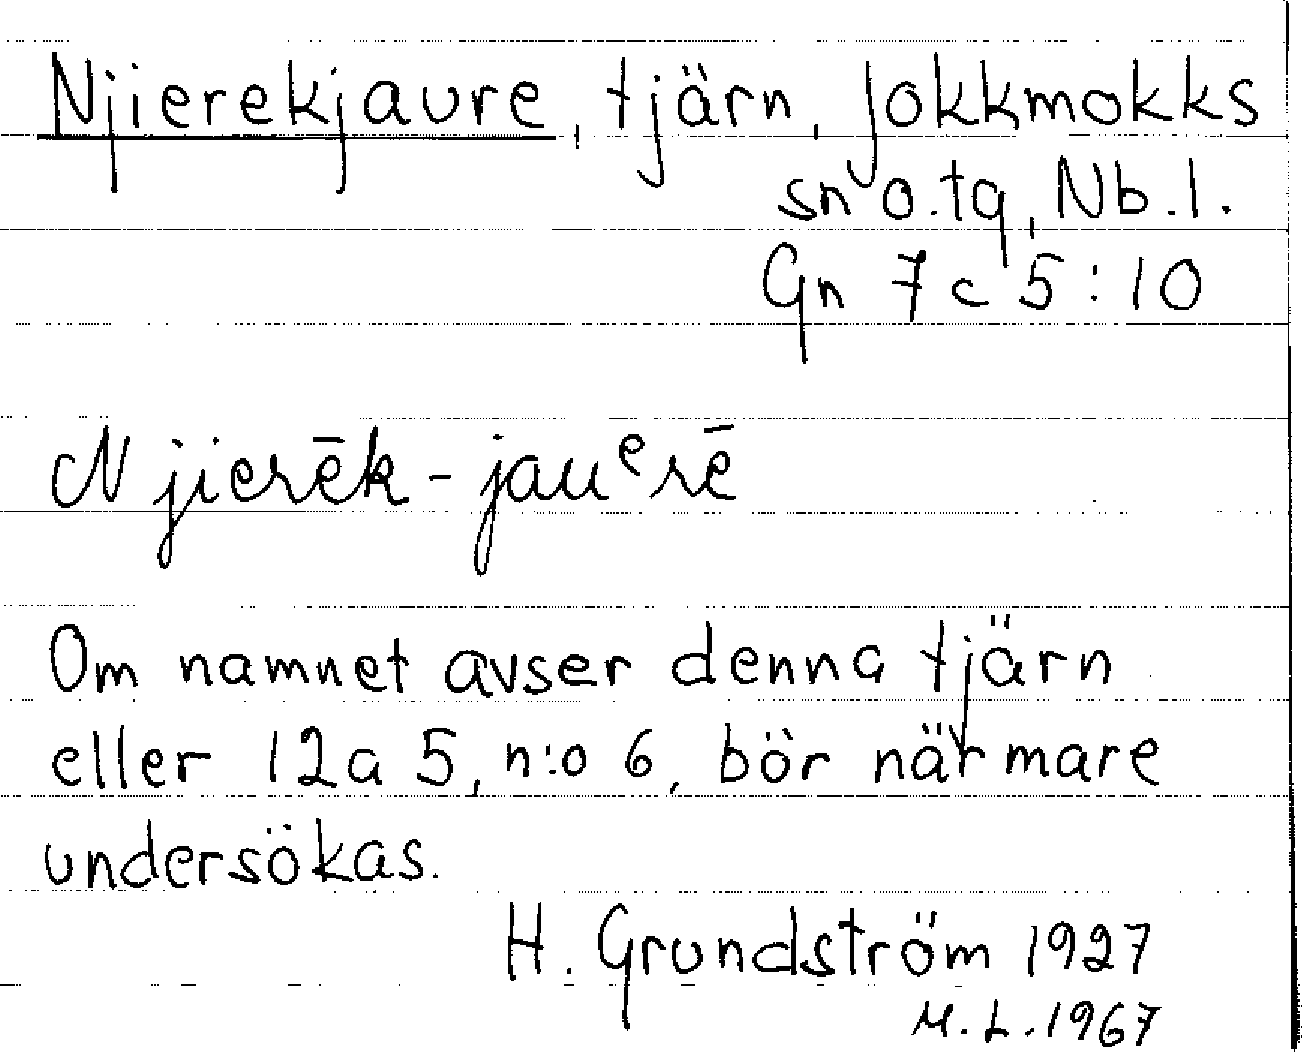 Njierekjaure, tjärn, Jokkmokks
sn o. tg, Nb. l.
Gn 7 c 5 : 10
Njierēk-jauᵉrē
Om namnet avser denna tjärn
eller 12a 5, n:o 6, bör närmare
undersökas.
H. Grundström 1927
M. L. 1967